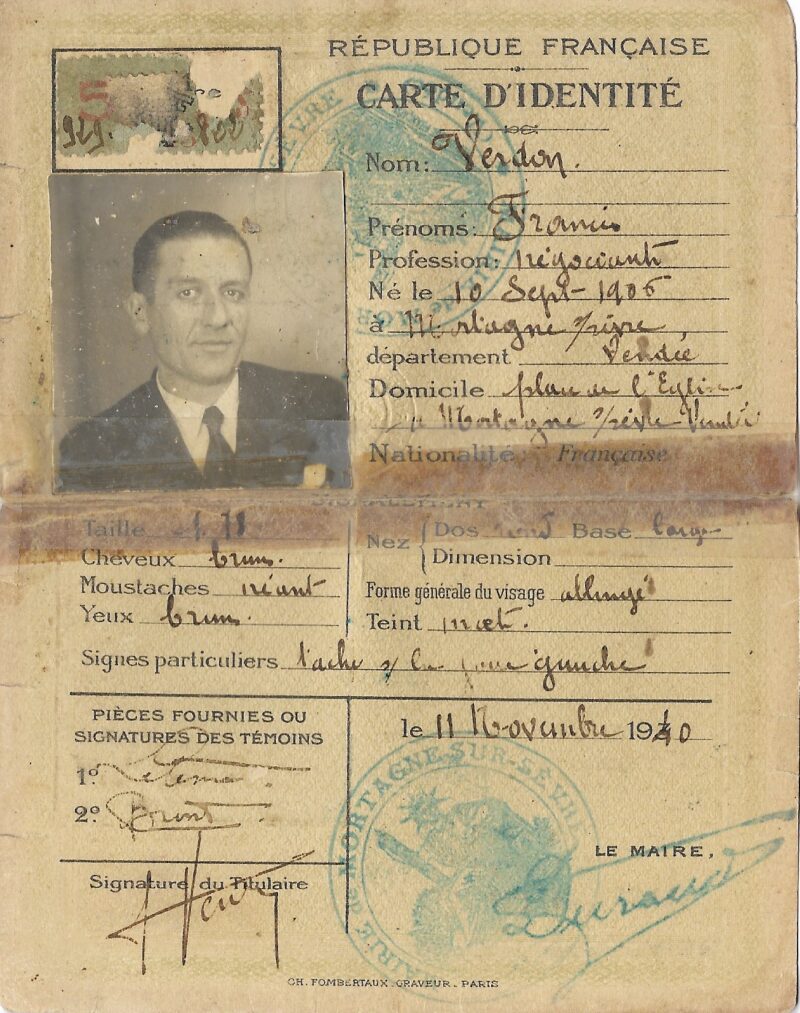 RÉPUBLIQUE FRANÇAISE
CARTE D'IDENTITÉ
Nom: Verdon.
Prénoms: Francis
Profession: négociant
Né le 10 Sept- 1906
à Mortagne s/sèvre,
département Vendée
Domicile place de l'Eglise
à Mortagne s/sèvre Vendée
Nationalité: Française
SIGNALEMENT
Taille 1
Cheveux bruns.
Moustaches néant
Yeux bruns.
Nez Dos rond Base large
Dimension
Forme générale du visage allongé
Teint mat.
Signes particuliers tache s/ la joue gauche
PIÈCES FOURNIES OU
SIGNATURES DES TÉMOINS
1º
2º
Signature du Titulaire
le 11 Novembre 1940
MAIRIE de MORTAGNE-SUR-SÈVRE
LE MAIRE,
Durand
CH. FOMBERTAUX.GRAVEUR. PARIS